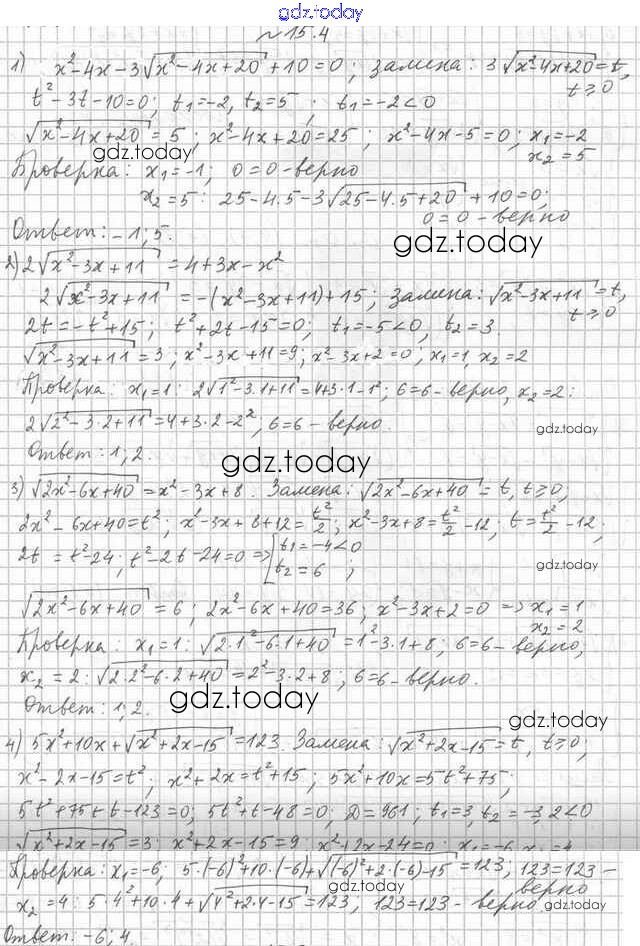 gdz.today
№ 15.4
1) x²-4x-3√(x²-4x+20)+10=0; замена: 3√(x²-4x+20)=t,
t≥0
t²-3t-10=0; t₁=-2, t₂=5; t₁=-2<0
√(x²-4x+20)=5; x²-4x+20=25; x²-4x-5=0; x₁=-2
x₂=5
gdz.today
Проверка: x₁=-1; 0=0-верно
x₂=5: 25-4.5-3√(25-4.5+20)+10=0;
0=0-верно
Ответ: -1; 5.
gdz.today
2) 2√(x²-3x+11)=4+3x-x²
2√(x²-3x+11)=-(x²-3x+11)+15; замена: √(x²-3x+11)=t,
t≥0
2t=-t²+15; t²+2t-15=0; t₁=-5<0, t₂=3.
√(x²-3x+11)=3; x²-3x+11=9; x²-3x+2=0; x₁=1, x₂=2
Проверка: x₁=1: 2√(1²-3.1+11)=4+3·1-1²; 6=6-верно, x₂=2:
2√(2²-3·2+11)=4+3·2-2², 6=6-верно.
gdz.today
Ответ: 1; 2.
gdz.today
3) √(2x²-6x+40)=x²-3x+8. Замена: √(2x²-6x+40)=t, t≥0;
2x²-6x+40=t²; x²-3x+8+12=t²/2; x²-3x+8=t²/2-12; t=t²/2-12;
2t=t²-24; t²-2t-24=0 => [t₁=-4<0
t₂=6;
gdz.today
√(2x²-6x+40)=6; 2x²-6x+40=36; x²-3x+2=0 => x₁=1
x₂=2
Проверка: x₁=1: √(2·1²-6·1+40)=1²-3.1+8; 6=6-верно,
x₂=2: √(2·2²-6·2+40)=2²-3·2+8; 6=6-верно.
gdz.today
Ответ: 1; 2.
gdz.today
4) 5x²+10x+√(x²+2x-15)=123. Замена: √(x²+2x-15)=t, t≥0;
x²-2x-15=t²; x²+2x=t²+15; 5x²+10x=5t²+75;
5t²+75+t-123=0; 5t²+t-48=0; D=961; t₁=3, t₂=-3,2<0
√(x²+2x-15)=3; x²+2x-15=9; x²+2x-24=0; x₁=-6, x₂=4
Проверка: x₁=-6; 5·(-6)²+10·(-6)+√((-6)²+2·(-6)-15)=123; 123=123-
верно
gdz.today
x₂=4: 5·4²+10·4+√(4²+2·4-15)=123, 123=123-верно.
gdz.today
Ответ: -6; 4.